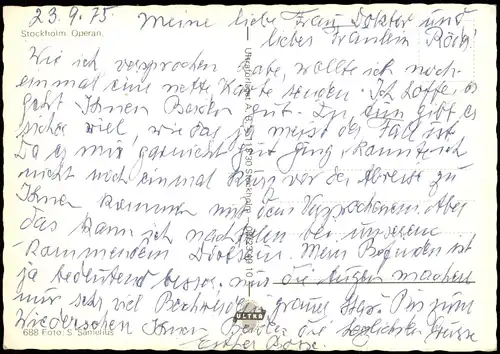 23.9.75 Meine liebe Frau Doktor und
Stockholm Operan.
liebes Fräulein Röck!
Wie ich versprochen habe, wollte ich noch
einmal eine nette Karte senden. Ich hoffe es
geht Ihnen Beiden gut. Zu tun gibt es
sicher viel, wie das ja meist der Fall ist
Da es mir garnicht gut ging, konnte ich
nicht noch einmal kurz vor der Abreise zu
Ihnen kommen mit dem Versprochenen. Aber
das kann ich nachholen bei unserem
kommenden Dortsein. Mein Befinden ist
ja bedeutend besser, nur die Augen machen
mir sehr viel Beschwerden, graues Star. Bis zum
Wiedersehen Ihnen Beiden die herzlichsten Grüsse
688 Foto: S. Samelius
ULTRA